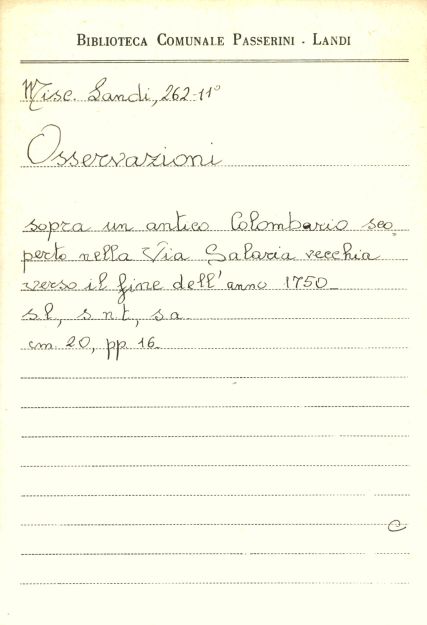 BIBLIOTECA COMUNALE PASSERINI - LANDI
Misc. Landi, 262-11°
Osservazioni
sopra un antico Colombario sco,
perto nella Via Salaria vecchia
verso il fine dell'anno 1750_
s.l, s.n.t, s.a.
cm. 20, pp. 16.
C